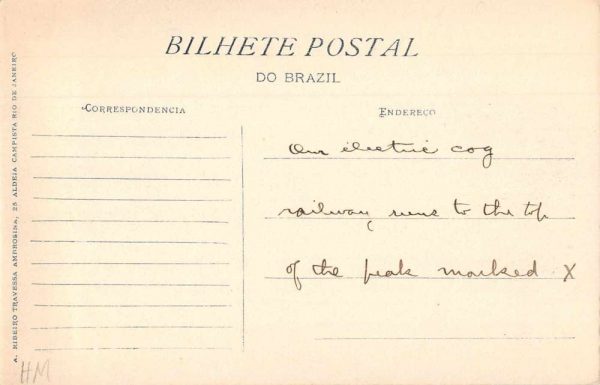 BILHETE POSTAL
DO BRAZIL
CORRESPONDENCIA
ENDEREÇO
Our electric cog
railway runs to the top
of the peak marked X
A. RIBEIRO TRAVESSA AMBROSINA, 25 ALDEIA CAMPISTA RIO DE JANEIRO
HM